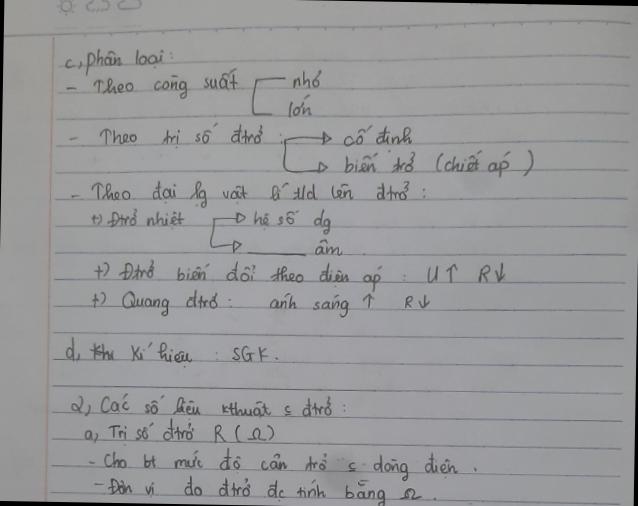 c, phân loại:
- Theo công suất nhỏ
lớn
- Theo trị số đtrở: cố định
biến trở (chiết áp)
- Theo đại lg vật lí t/d lên đtrở:
+) Đtrở nhiệt hệ số dg
______ âm.
+) Đtrở biến đổi theo điện áp: U↑ R↓
+) Quang đtrở: ánh sáng ↑ R↓
d, Kí hiệu: SGK.
2, Các số liệu kthuật c đtrở:
a, Trị số đtrở R (Ω)
- Cho bt mức độ cản trở c dòng điện.
- Đơn vị đo đtrở đc tính bằng Ω.